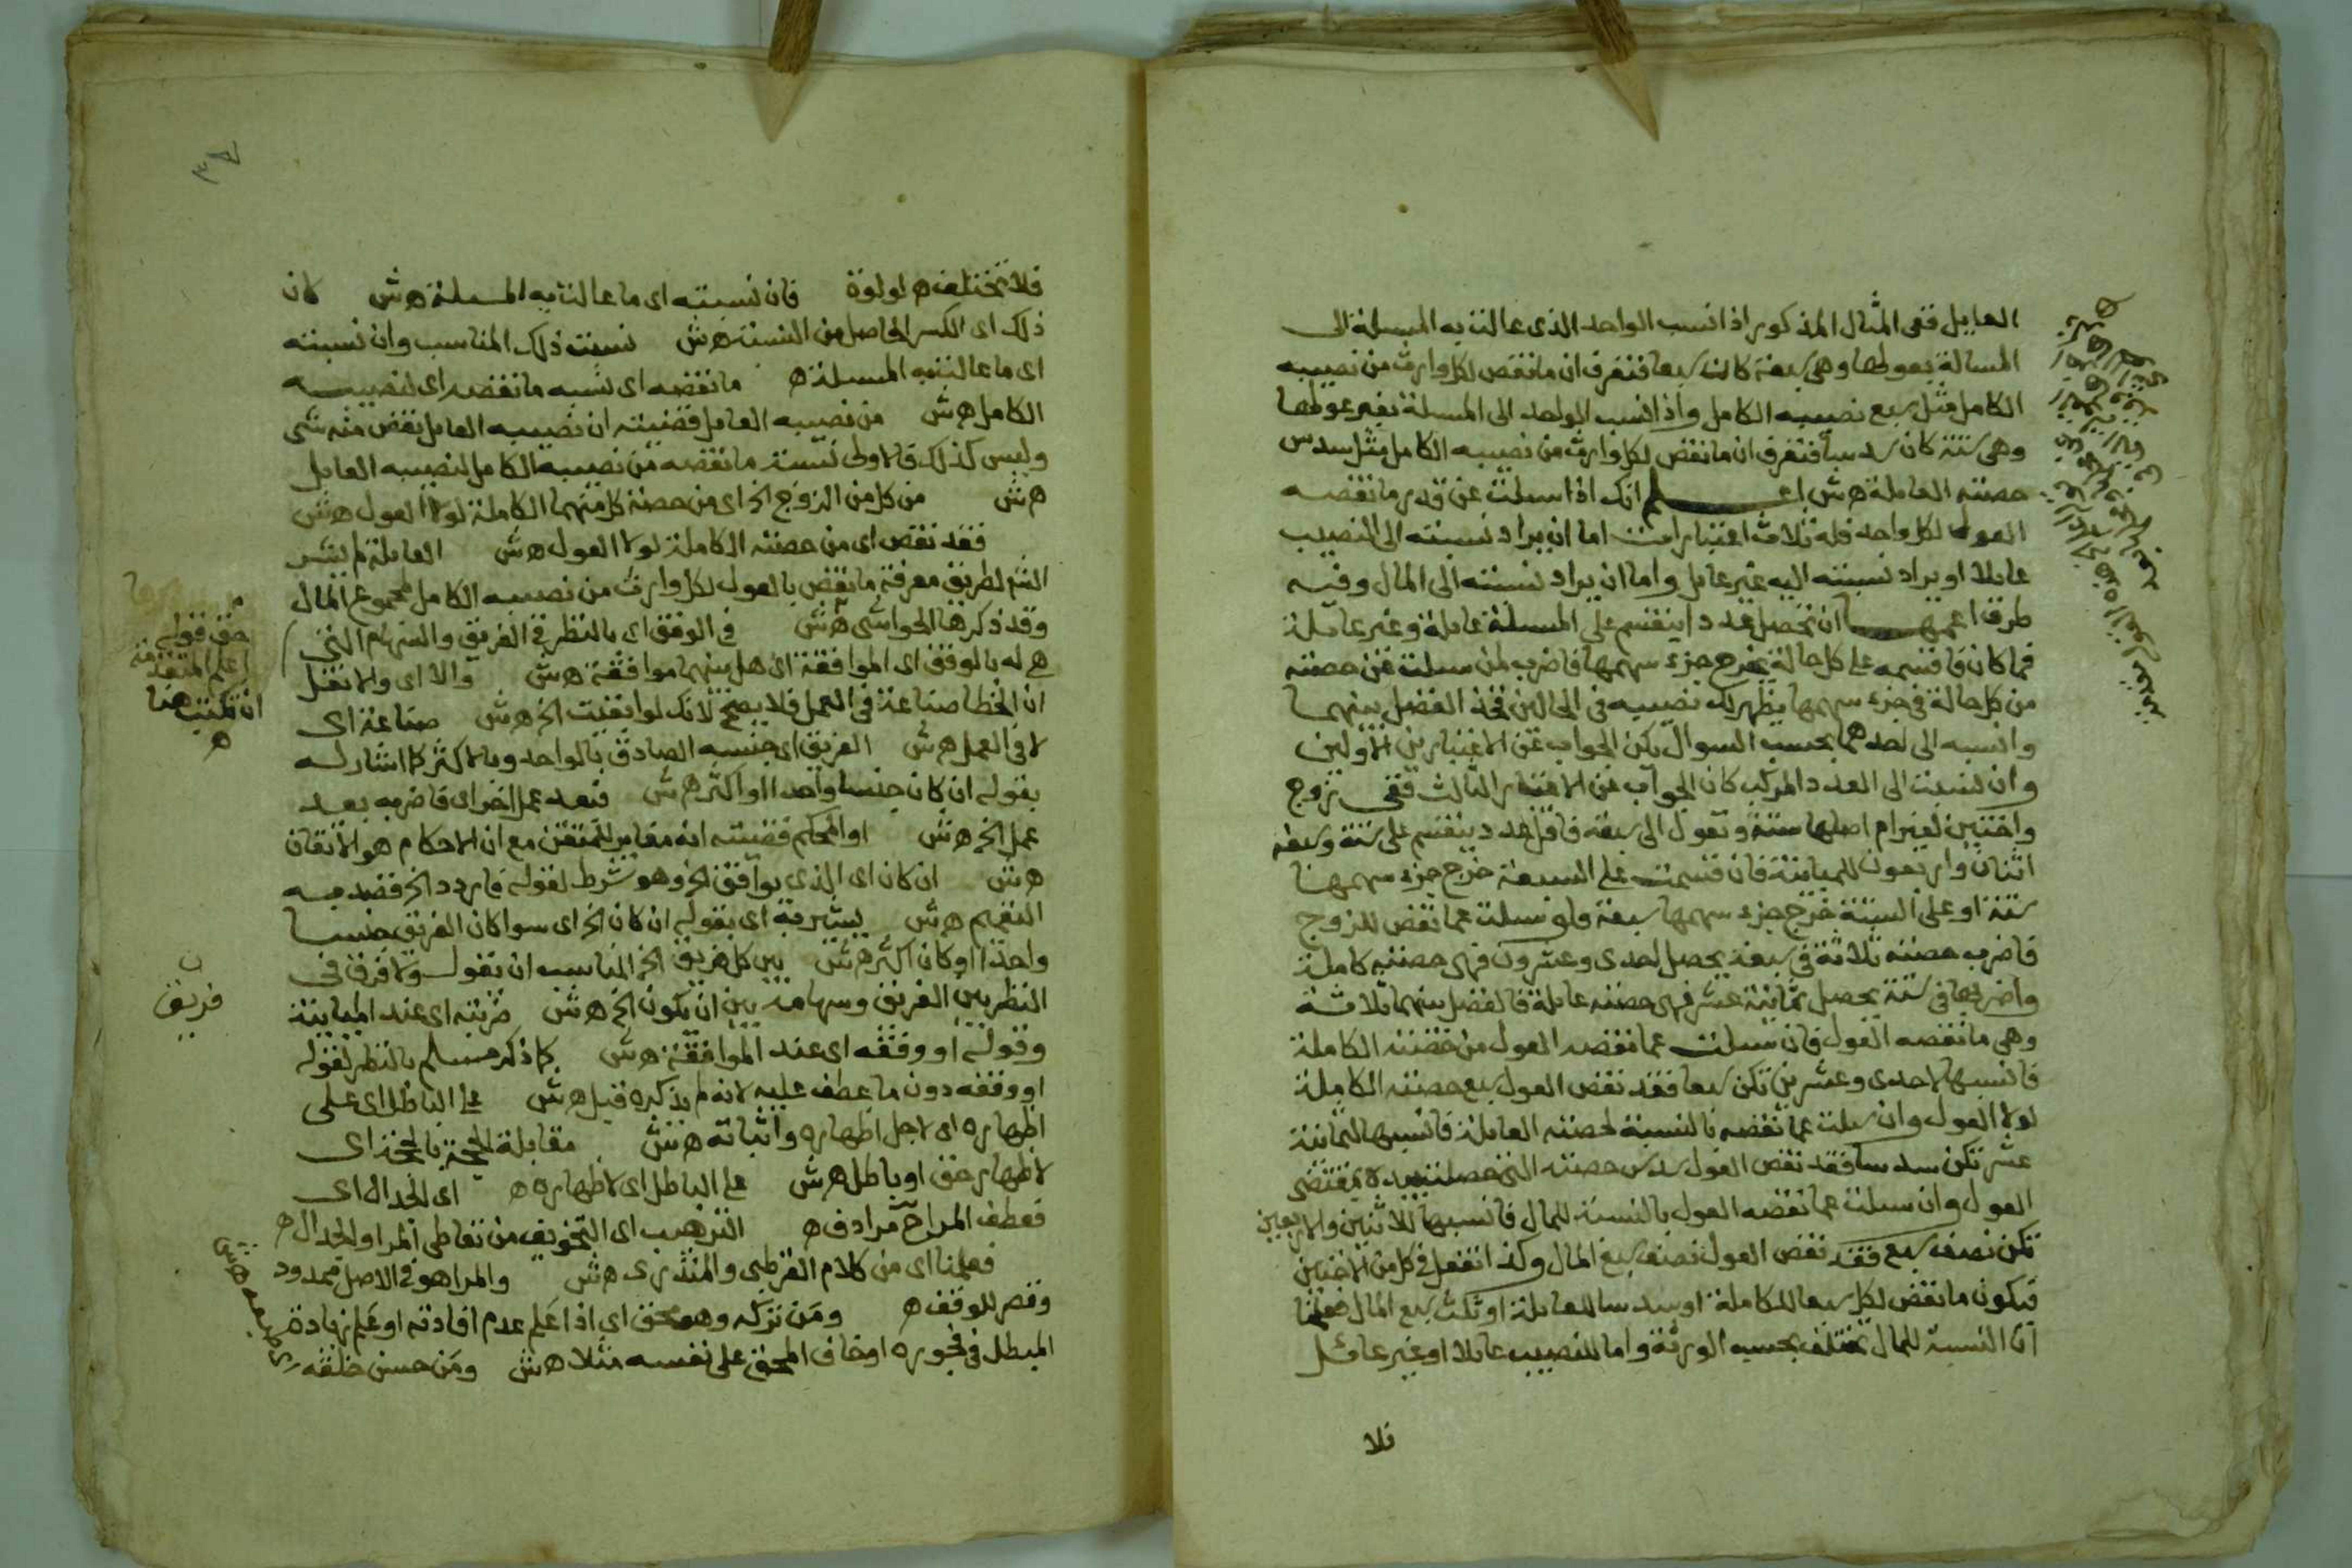 العايل ففى المثال المذكور اذا نسب الواحد الذى عالت به المسلة الى
المسالة بعولها وهى سبعة كان سبعا فتعرف ان ما نقص لكل وارث من نصيبه
الكامل مثل سبع نصيبه الكامل واذا نسب الواحد الى المسلة بغير عولها
وهى ستة كان سدسا فتعرف ان ما نقص لكل وارث من نصيبه الكامل مثل سدس
حصته العايلة هش اعلم انك اذا سيلت عن قدر ما نقصه
العول لكل واحد فله ثلاث اعتبارات اما ان يراد نسبته الى النصيب
عايلا او يراد نسبته اليه غير عايل واما ان يراد نسبته الى المال وفيه
طرق اعمها ان تحصل عددا ينقسم على المسلة عايلة وغير عايلة
فما كان فاقسمه على كل حالة يخرج جزء سهمها فاضرب لمن سيلت عن حصته
من كل حالة فى جزء سهمها يظهر لك نصيبه فى الحالين فخذ الفضل بينهما
وانسبه الى احدهما بحسب السوال يكن الجواب عن الاعتبارين الاولين
وان نسبت الى العدد المركب كان الجواب عن الاعتبار الثالث ففى زوج
واختين لغير ام اصلها ستة وتعول الى سبعة فاقل عدد ينقسم على ستة وسبعة
اثنان واربعون للمباينة فان قسمت على السبعة خرج جزء سهمها
ستة او على الستة خرج جزء سهمها سبعة ولو سيلت عما نقص للزوج
فاضرب حصته ثلاثة فى سبعة يحصل احدى وعشرون فهى حصته كاملة
واضربها فى ستة يحصل ثمانية عشر فهى حصته عايلة فالفضل بينهما ثلاثة
وهى ما نقصه العول فان سيلت عما نقصه العول من حصته الكاملة
فانسبها لاحدى وعشرين تكن سبعا فقد نقص العول سبع حصته الكاملة
لولا العول وان سيلت عما نقصه بالنسبة لحصته العايلة فانسبها لثمانية
عشر تكن سدسا فقد نقص العول سدس حصته التى حصلت بيده بمقتضى
العول وان سيلت عما نقصه العول بالنسبة للمال فانسبها للاثنين والاربعين
تكن نصف سبع فقد نقص العول نصف سبع المال وكذا تفعل فى كل من الاختين
فيكون ما نقص لكل سبعا للكاملة او سدسا للعايلة او ثلث سبع المال فعلمنا
ان النسبة للمال تختلف بحسب الورثة واما للنصيب عايلا او غير عائل
فلا
٣٨
فلا تختلف ه لولوة فان نسبته اى ما عالت به المسلة هش كان
ذلك اى الكسر الحاصل من النسبة هش نسبت ذلك المناسب وان نسبته
اى ما عالت به المسلة ه ما نقصه اى نسبه ما نقصه اى لنصيبه
الكامل هش من نصيبه العايل قضيته ان نصيبه العايل نقص منه شى
وليس كذلك فالاولى نسبة ما نقصه من نصيبه الكامل لنصيبه العايل
هش من كل من الزوج الخ اى من حصة كل منهما الكاملة لولا العول هش
فقد نقص اى من حصته الكاملة لولا العول هش العايلة لم يشر
الشم لطريق معرفة ما نقص بالعول لكل وارث من نصيبه الكامل لمجموع المال
وقد ذكرها الحواشى هش فى الوفق اى بالنظر فى الفريق والسهام التى
هى له بالوفق اى الموافقة اى هل بينهما موافقة هش والا اى والا نقل
ان الخطا صناعة فى العمل فلا يصح لانك لو ابقيت الخ هش صناعة اى
لا فى العمل هش الفريق اى جنسه الصادق بالواحد وبالاكثر كما اشار له
بقوله ان كان جنسا واحدا او اكثر هش فبعد عمل اخر اى فاضربه بعد
عمل الخ هش او المحكم قضيته انه مغاير للمتقن مع ان الاحكام هو الاتقان
هش ان كان اى الذى يوافق الخ وهو شرط لقوله فاردد الخ قصد به
التعميم هش يشير به اى بقوله ان كان الخ اى سوا كان الفريق جنسا
واحدا او كان اكثر هش بين كل فريق الخ المناسب ان يقول ولا فرق فى
النظر بين الفريق وسهامه بين ان يكون الخ هش ضربته اى عند المباينة
وقوله او وفقه اى عند الموافقة هش كما ذكر مسلم بالنظر لقوله
او وفقه دون ما عطف عليه لانه لم يذكره قبل هش على الباطل اى على
اظهاره اى لاجل اظهاره واثباته هش مقابلة الحجة بالحجة اى
لاظهار حق او باطل هش على الباطل اى لاظهاره ه اى الجدال اى
فعطف المراح مرادف ه الترهيب اى التخويف من تعاطى المرا والجدال ه
فعلمنا اى من كلام القرطبى والمنذرى هش والمرا هو فى الاصل ممدود
وقصر للوقف ه ومن تركه وهو محق اى اذا علم عدم افادته او علم زيادة
المبطل فى فجوره او خاف المحق على نفسه مثلا هش ومن حسن خلقه
حق قوله
اعلم المتقدمة
ان تكتب هنا
ه
فريق